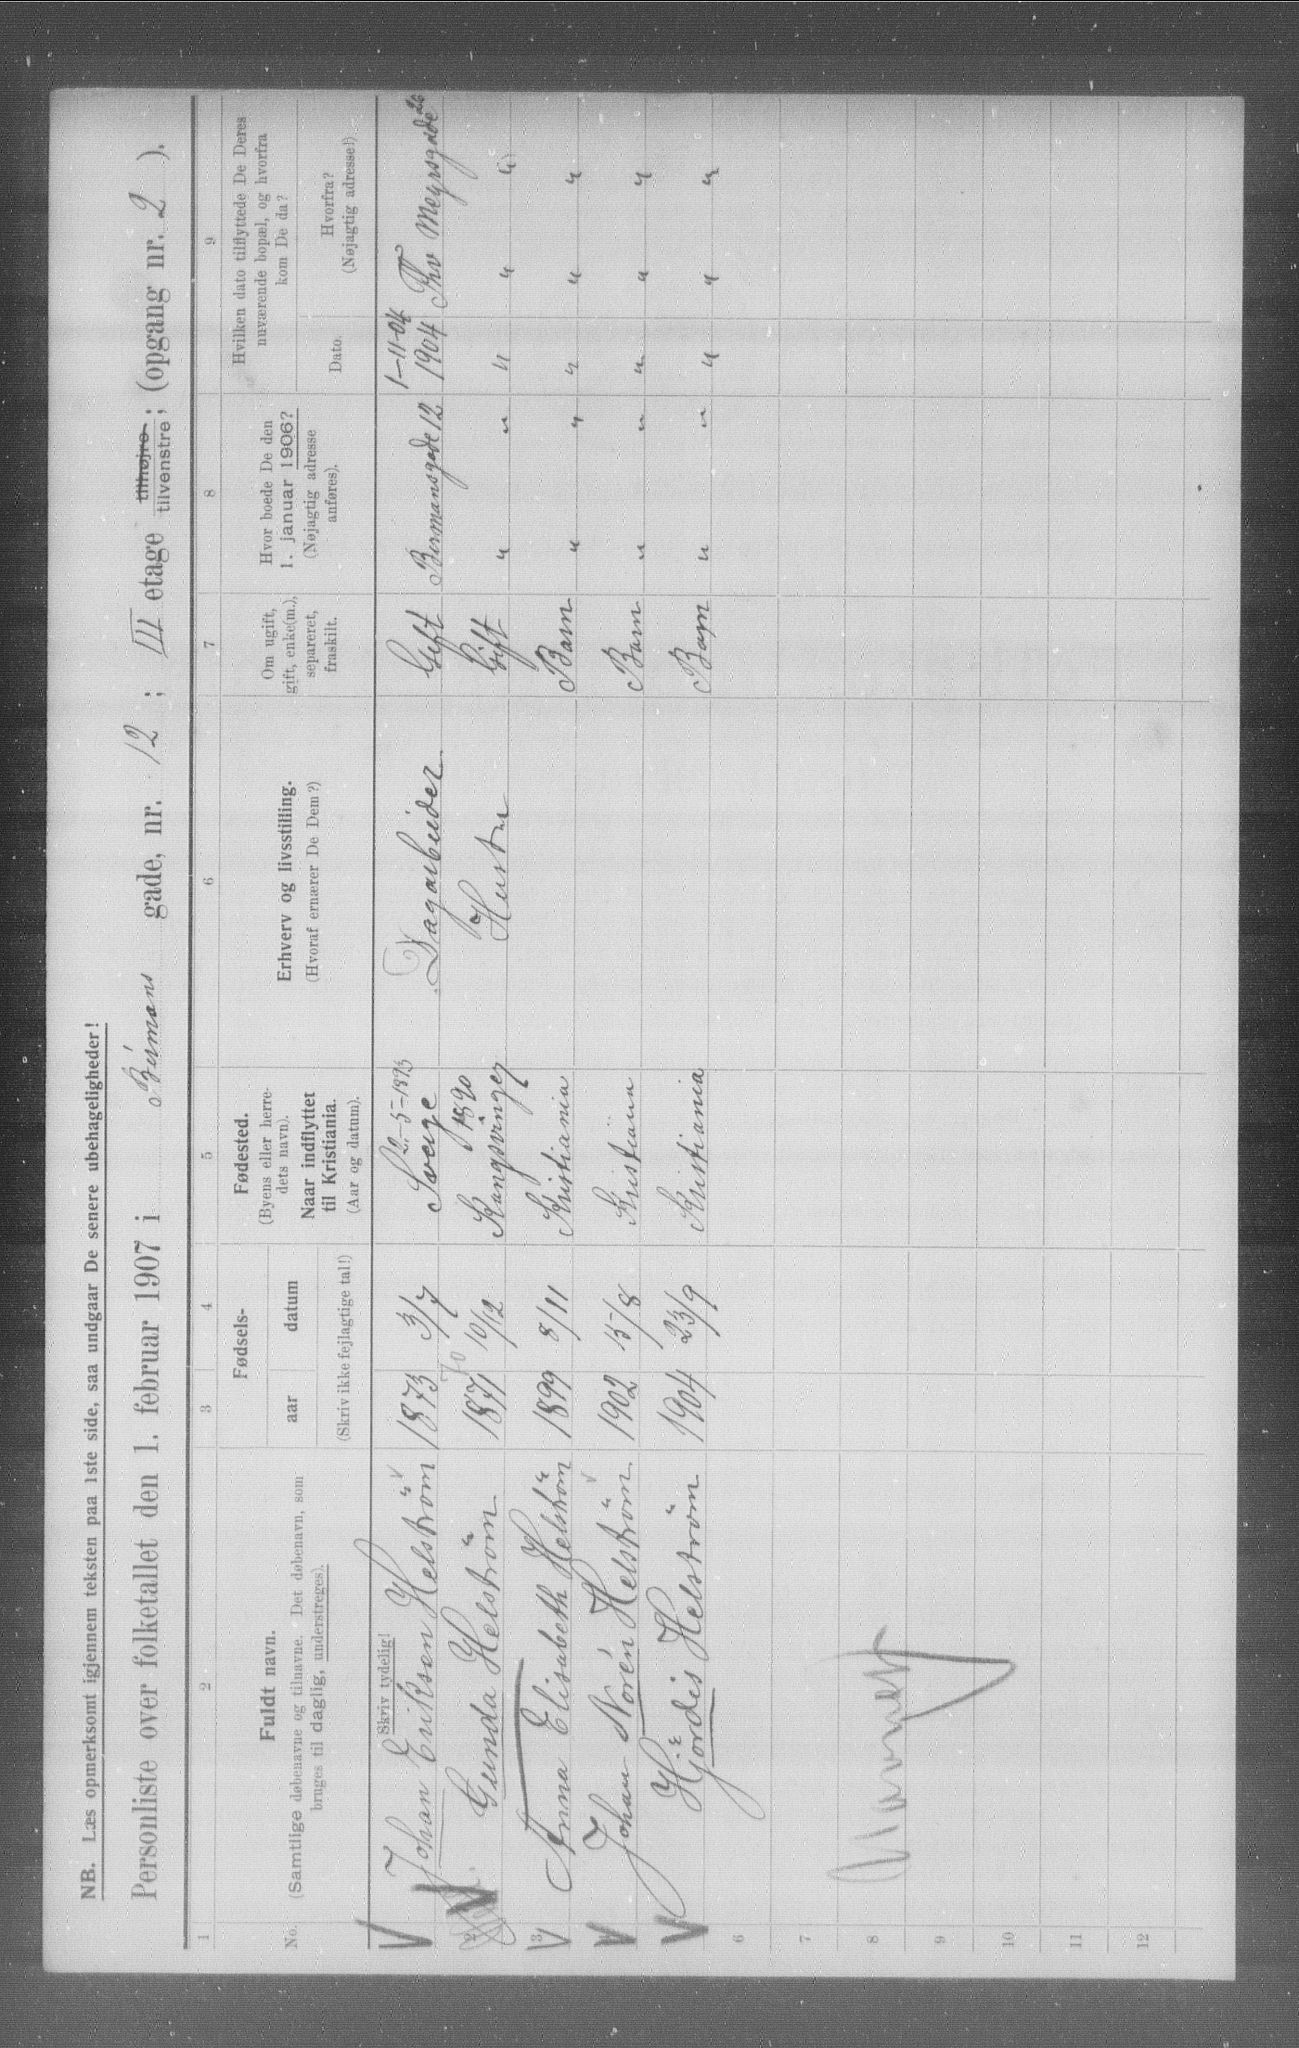 NB. Læs opmerksomt igjennem teksten paa 1ste side, saa undgaar De senere ubehageligheder!
Personliste over folketallet den 1. februar 1907 i Birmans gade, nr. 12 ; III etage tilhøjre tilvenstre; (opgang nr. 2 ).
1 2 3 4 5 6 7 8 9
No.
Fuldt navn.
(Samtlige døbenavne og tilnavne. Det døbenavn, som
bruges til daglig, understreges).
Skriv tydelig!
Fødsels-
aar datum
(Skriv ikke fejlagtige tal!)
Fødested.
(Byens eller herre-
dets navn).
Naar indflyttet
til Kristiania.
(Aar og datum).
Erhverv og livsstilling.
(Hvoraf ernærer De Dem?)
Om ugift,
gift, enke(m.),
separeret,
fraskilt.
Hvor boede De den
1. januar 1906?
(Nøjagtig adresse
anføres).
Hvilken dato tilflyttede De Deres
nuværende bopæl, og hvorfra
kom De da?
Dato.
Hvorfra?
(Nøjagtig adresse!)
2-5-1893 1-11-04
Johan Eriksen Helström 1873 3/7 Sverge Dagarbeider Gift Birmansgade 12 1904 Thv Meyrsgade 26
70 1890
2 Gunda Helström 1871 10/12 Kongsvinger Hustru Gift " " " " "
3 Anna Elisabeth Helström 1899 8/11 Kristiania Barn " " " " "
Johan Norén Helström 1902 15/8 Kristiania Barn " " " " "
Hjördis Helström 1904 23/9 Kristiania Barn " " " " "
6
7
8
9
10
11
12